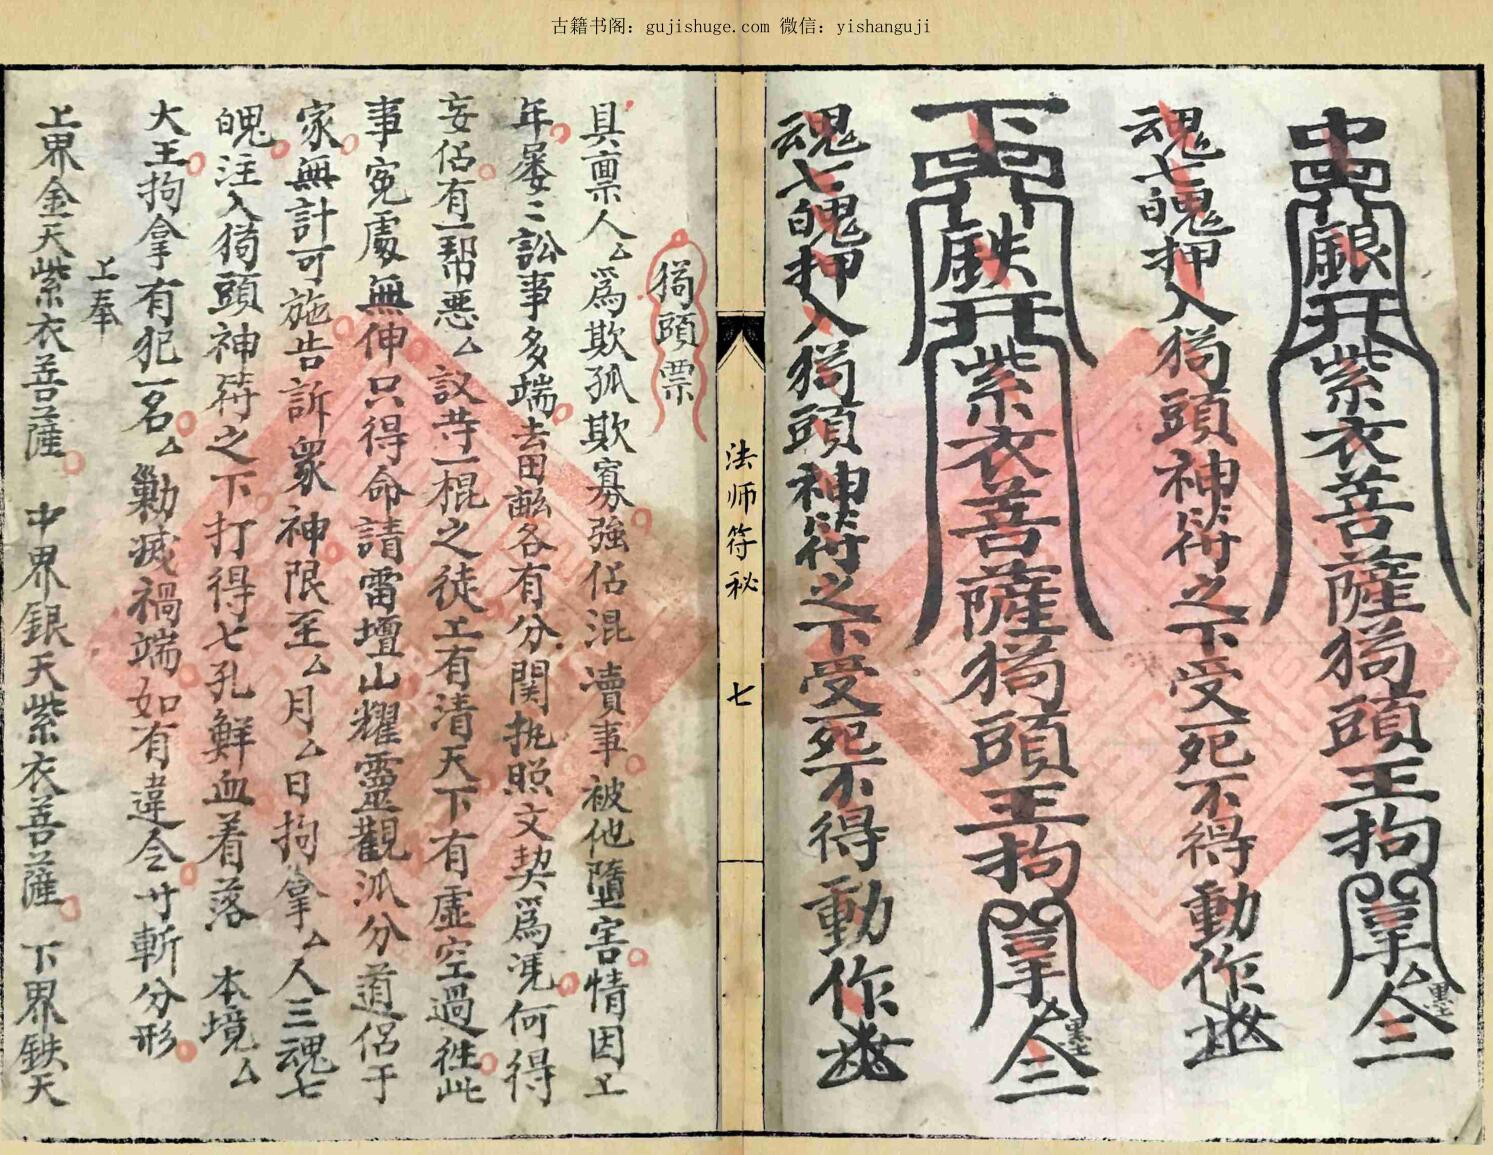 古籍书阁：gujishuge.com 微信：yishanguji
中
銀
紫衣菩薩猖頭王拘拿厶人三
墨
魂七魄押入猖頭神符之下受死不得動作
下
鉄
紫衣菩薩猖頭王拘拿厶人三
墨
魂七魄押入猖頭神符之下受死不得動作
法师符秘
七
猖頭票
具禀人厶爲欺孤欺寡強侣混瀆事被他墮害情因上
年屡二訟事多端去田畝各有分関执照文契爲凴何得
妄侣有一帮悪厶 説廿一棍之徒上有清天下有虚空過徃此
事冤處無伸只得命請雷壇山耀靈觀派分道侣于
家無計可施告訴衆神限至厶月厶日拘拿厶人三魂七
魄注入猖頭神符之下打得七孔鮮血着落 本境厶
大王拘拿有犯一名厶勦滅禍端如有違令寸斬分形
上奉
上界金天紫衣菩薩 中界銀天紫衣菩薩 下界鉄天